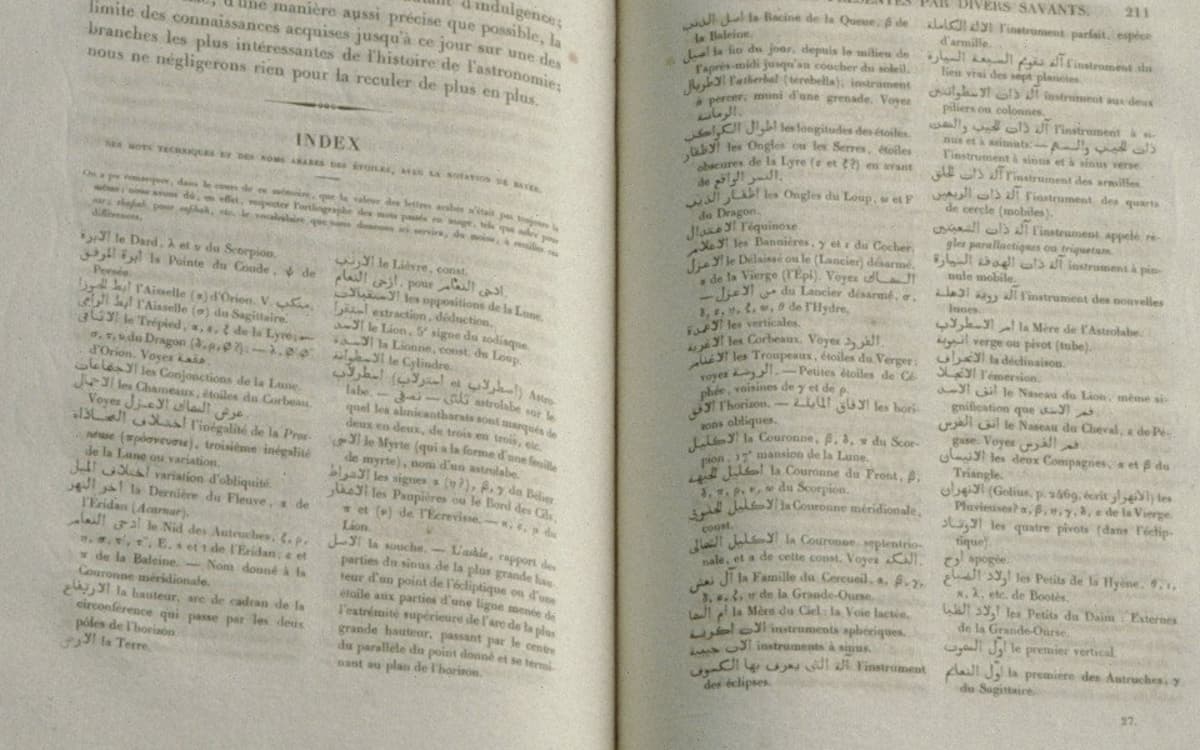 d'une manière aussi précise que possible, la
limite des connaissances acquises jusqu'à ce jour sur une des
branches les plus intéressantes de l'histoire de l'astronomie;
nous ne négligerons rien pour la reculer de plus en plus.
INDEX
DES MOTS TECHNIQUES ET DES NOMS ARABES DES ÉTOILES, AVEC LA NOTATION DE BAYER.
On a pu remarquer, dans le cours de ce mémoire, que la valeur des lettres arabes n'était pas toujours la
même; nous avons dû, en effet, respecter l'orthographe des mots passés en usage, tels que
pour etc. le vocabulaire que nous donnons ici servira, du moins, à rectifier ces
différences.
الابرة le Dard, λ et υ du Scorpion.
ابرة المرفق la Pointe du Coude, ψ de
Persée.
ابط الجوزا l'Aisselle (α) d'Orion. V. منكب.
ابط الرامى l'Aisselle (σ) du Sagittaire.
الاثافى le Trépied, de la Lyre; —
du Dragon
d'Orion. Voyez هقعة.
الاجتماعات les Conjonctions de la Lune.
الاجمال les Chameaux, étoiles du Corbeau.
Voyez عرش السماك الاعزل.
اختلاف l'inégalité de la Pros-
neuse (πρόσνευσις), troisième inégalité
de la Lune ou variation.
اختلاف الميل variation d'obliquité.
اخر النهر la Dernière du Fleuve, α de
l'Éridan (Acarnar).
ادحى النعام le Nid des Autruches, ζ, ρ,
de l'Éridan; ε et
π de la Baleine. — Nom donné à la
Couronne méridionale.
الارتفاع la hauteur, arc de cadran de la
circonférence qui passe par les deux
pôles de l'horizon.
الارض la Terre.
الارنب le Lièvre, const.
ازحى النعام, pour ادحى النعام.
الاستقبالات les oppositions de la Lune.
استقرا extraction, déduction.
الاسد le Lion, 5e signe du zodiaque.
الاسدة la Lionne, const. du Loup.
الاسطوانة le Cylindre.
اسطرلاب (اسطرلاب et استرلاب) Astro-
labe. — نصفى — ثلثى astrolabe sur le-
quel les almicantharats sont marqués de
deux en deux, de trois en trois, etc.
الاس le Myrte (qui a la forme d'une feuille
de myrte), nom d'un astrolabe.
الاشراط les signes α (η?), β, γ du Bélier.
الاشفار les Paupières ou le Bord des Cils,
de l'Écrevisse. — du
Lion.
الاصل la souche. — L'askle, rapport des
parties du sinus de la plus grande hau-
teur d'un point de l'écliptique ou d'une
étoile aux parties d'une ligne menée de
l'extrémité supérieure de l'arc de la plus
grande hauteur, passant par le centre
du parallèle du point donné et se termi-
nant au plan de l'horizon.
PRÉSENTÉS PAR DIVERS SAVANTS. 211
اصل الذنب la Racine de la Queue, β de
la Baleine.
اصيل la fin du jour, depuis le milieu de
l'après-midi jusqu'au coucher du soleil.
الاطربال l'atherbal (terebella), instrument
à percer, muni d'une grenade. Voyez
الرمانة.
اطوال الكواكب les longitudes des étoiles.
الاظفار les Ongles ou les Serres, étoiles
obscures de la Lyre (ε et ζ?) en avant
de النسر الواقع.
اظفار الذيب les Ongles du Loup, ω et F
du Dragon.
الاعتدال l'équinoxe.
الاعلام les Bannières, γ et ι du Cocher.
الاعزل le Délaissé ou le (Lancier) désarmé,
α de la Vierge (l'Épi). Voyez السماك
— من الاعزل du Lancier désarmé, σ,
δ, ε, η, ζ, ω, θ de l'Hydre.
الاعمدة les verticales.
الاغربة les Corbeaux. Voyez القرود.
الاغنام les Troupeaux, étoiles du Verger;
voyez الروضة. — Petites étoiles de Cé-
phée, voisines de γ et de ρ.
الافق l'horizon. — الافاق المايلة les hori-
zons obliques.
الاكليل la Couronne, β, δ, π du Scor-
pion, 17e mansion de la Lune.
اكليل الجبهة la Couronne du Front, β,
δ, π, ρ, ν, ω du Scorpion.
الاكليل الجنوبى la Couronne méridionale,
const.
الاكليل الشمالى la Couronne septentrio-
nale, et α de cette const. Voyez الفكة.
آل نعش la Famille du Cercueil, α, β, γ,
de la Grande-Ourse.
ام السما la Mère du Ciel; la Voie lactée.
الات اكرية instruments sphériques.
الات جيبية instruments à sinus.
آلة التى يعرف بها الكسوف l'instrument
des éclipses.
الالة الكاملة l'instrument parfait, espèce
d'armille.
آلة تقويم السبعة السيارة l'instrument du
lieu vrai des sept planètes.
آلة ذات الاسطوانتين instrument aux deux
piliers ou colonnes.
آلة ذات الجيب والسمت l'instrument à si-
nus et à azimuts; — ذات الجيب والسهم
l'instrument à sinus et à sinus verse.
آلة ذات الحلق l'instrument des armilles.
آلة ذات الربعين l'instrument des quarts
de cercle (mobiles).
آلة ذات الشعبتين l'instrument appelé rè-
gles parallactiques ou triquetum.
آلة ذات الهدفة السيارة instrument à pin-
nule mobile.
آلة روية الاهلة l'instrument des nouvelles
lunes.
ام الاسطرلاب la Mère de l'Astrolabe.
انبوبة verge ou pivot (tube).
الانحراف la déclinaison.
الانجلا l'émersion.
انف الاسد le Naseau du Lion, même si-
gnification que فم الاسد.
انف الفرس le Naseau du Cheval, ε de Pé-
gase. Voyez فم الفرس.
الانيسان les deux Compagnes, α et β du
Triangle.
الانهران (Golius, p. 2469, écrit الانهرار) les
Pluvieuses? α, β, η, γ, δ, ε de la Vierge.
الاوتاد les quatre pivots (dans l'éclip-
tique).
اوج apogée.
اولاد الضباع les Petits de la Hyène, θ, ι,
κ, λ, etc. de Bootès.
اولاد الظبا les Petits du Daim; Externes
de la Grande-Ourse.
اول السموت le premier vertical.
اول النعام la première des Autruches, γ
du Sagittaire.
27.